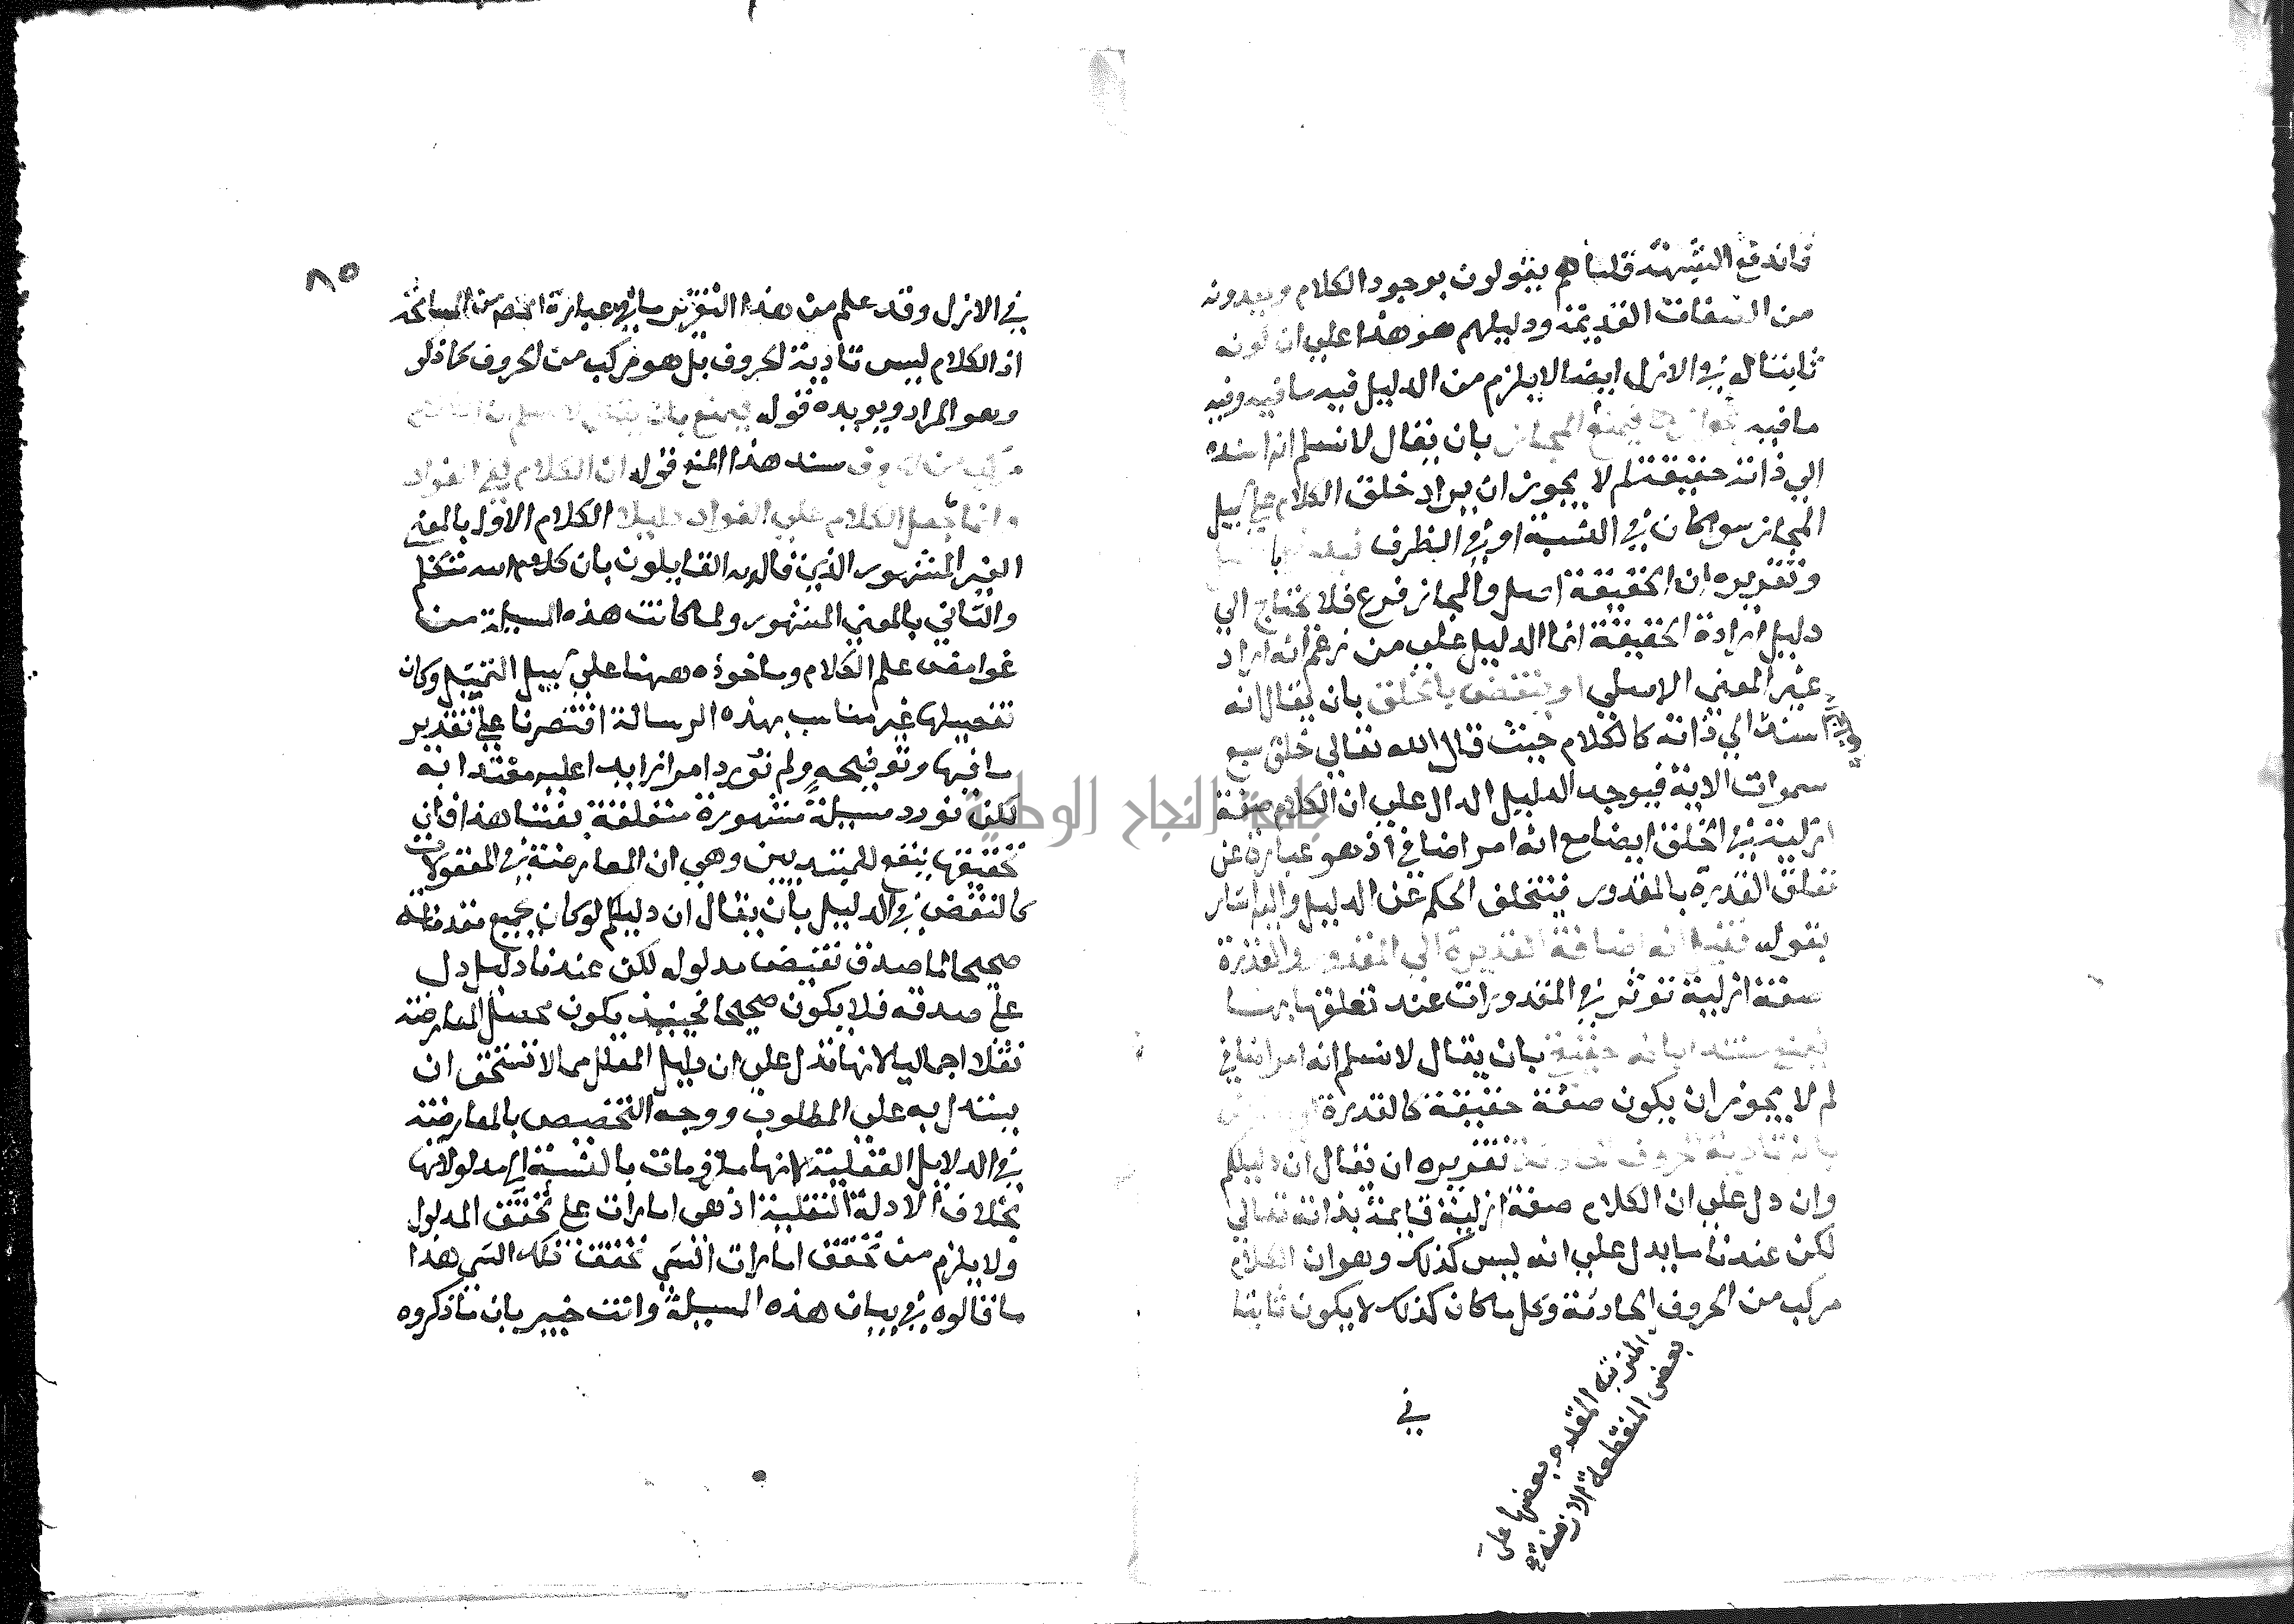 فاندفع الشبهة قلنا هم يقولون بوجود الكلام ويعدونه
من الصفات القديمة ودليلهم هو هذا على ان كونه
ثابتا له في الازل ايضا لا يلزم من الدليل فيه ما فيه وفيه
ما فيه بان يقال لا نسلم انه اسنده
الي ذاته حقيقة لم لا يجوز ان يراد خلق الكلام علي سبيل
المجاز سوا كان في النسبة او في الطرف
وتقريره ان الحقيقة اصل والمجاز فرع فلا تحتاج الي
دليل ارادة الحقيقة انما الدليل علي من زعم انه اراد
غير المعني الاصلي او ينتقض بالخلق بان يقال انه
اسند الي ذاته كالكلام حيث قال الله تعالي خلق سبع
سموات الاية فيوجد الدليل الدال علي ان الكلام صفة
ازلية في الخلق ايضا مع انه امر اضافي اذ هو عبارة عن
تعلق القدرة بالمقدور فيتخلف الحكم عن الدليل واليه اشار
بقوله اضافة القدرة الي المقدور والقدرة
صفة ازلية توثر في المقدورات عند تعلقها بها
بان يقال لا نسلم انه امر اضافي
لم لا يجوز ان يكون صفة حقيقة كالقدرة
تقريره ان يقال ان دليلكم
وان دل علي ان الكلام صفة ازلية قايمة بذاته تعالي
لكن عندنا ما يدل علي انه ليس كذلك وهو ان الكلام
مركب من الحروف الحادثة وكل ما كان كذلك لا يكون ثابتا
المترتبة المقدم بعضها على
بعض المنقطعة الازمنة
في
٨٥
في الازل وقد علم من هذا التقرير ما في عبارة المصـ من المسامحة
اذ الكلام ليس تادية الحروف بل هو مركب من الحروف كما ذكر
وهو المراد ويويده قوله
سند هذا المنع قوله ان الكلام لفي الفواد
وانما جعل الكلام علي الفواد دليلا الكلام الاول بالمعني
الغير المشهور الذي قال به القايلون بان كلام الله متكلم
والثاني بالمعني المشهور ولما كانت هذه المسيلة من
غوامض علم الكلام وماخوذه ههنا علي سبيل التمثيل وكان
تفصيلها غير مناسب بهذه الرسالة اقتصرنا علي تقدير
ما فيها وتوضيحه ولم نورد امرا زايدا عليه معتدا به
لكن نورد مسيلة مشهورة متعلقة بقسنا هذا فان
تحقيقها ينفع للمبتديين وهي ان المعارضة في المعقولات
كالنقض في الدليل بان يقال ان دليلكم لو كان بجميع مقدماته
صحيحا لما صدق نقيض مدلوله لكن عندنا دليل دل
علي صدقه فلا يكون صحيحا فحينيذ يكون محصل المعارضة
نقلا اجماليا لانها تدل علي ان دليل المعلل مما لا يستحق ان
يستدل به علي المطلوب ووجه التخصيص بالمعارضة
في الدلايل العقلية لانها ملزومات بالنسبة الي مدلولاتها
بخلاف الادلة النقلية اذ هي امارات علي تحقق المدلول
ولا يلزم من تحقق امارات الشي تحقق ذلك الشي هذا
ما قالوه في بيان هذه المسيلة وانت خبير بان ما ذكروه
جامعة النجاح الوطنية